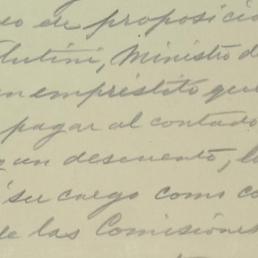 eo en proposicio
lutini, Ministro d
un empréstito que
pagar al contado
un descuento, lo
su cargo como co
de las Comisiones